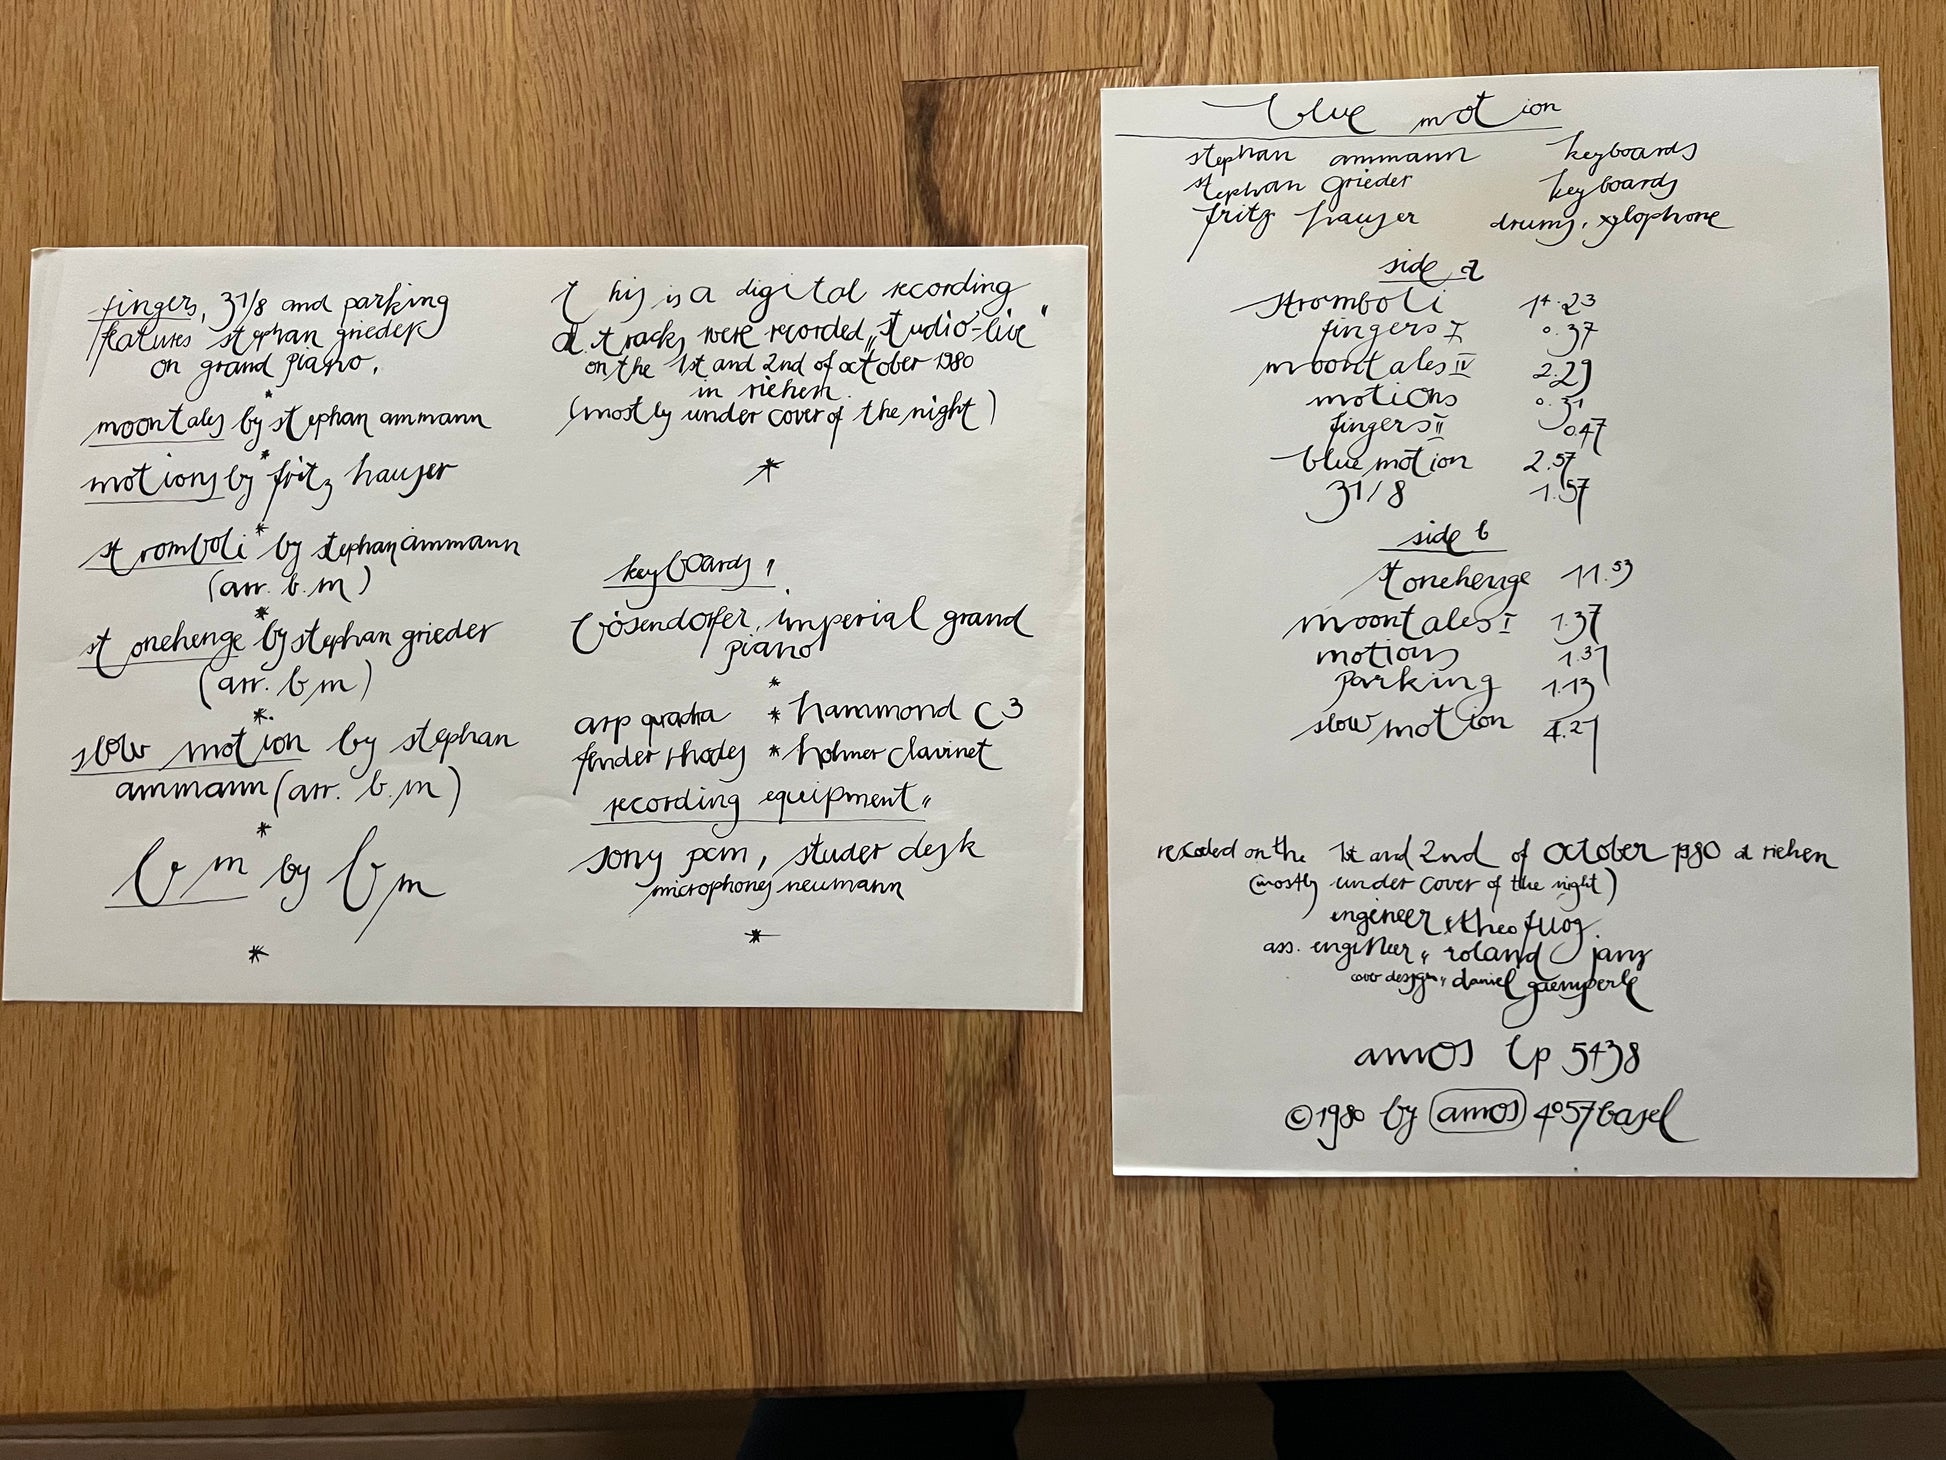 fingers, 31/8 and parking
features stephan grieder
on grand piano.
*
moontales by stephan ammann
*
motions by fritz hauser
*
stromboli by stephan ammann
(arr. b.m)
*
stonehenge by stephan grieder
(arr. b m)
*
slow motion by stephan
ammann (arr. b.m)
*
b m by b m
*
this is a digital recording
all tracks were recorded „studio-live"
on the 1st and 2nd of october 1980
in riehen.
(mostly under cover of the night)
*
keyboards "
bösendorfer, imperial grand
piano
*
arp quadra * hammond c3
fender rhodes * hohner clavinet
recording equipment "
sony pcm, studer desk
microphones neumann
*
blue motion
stephan ammann keyboards
stephan grieder keyboards
fritz hauser drums, xylophone
side a
stromboli 14.23
fingers I 0.37
moontales IV 2.29
motions 0.31
fingers II 0.47
blue motion 2.57
31/8 1.57
side b
stonehenge 11.53
moontales I 1.37
motions 1.31
parking 1.13
slow motion 4.21
recorded on the 1st and 2nd of october 1980 at riehen
(mostly under cover of the night)
engineer theo fuog
ass. engineer " roland janz
cover design " daniel gaemperle
amos lp 5438
© 1980 by amos 4057 basel